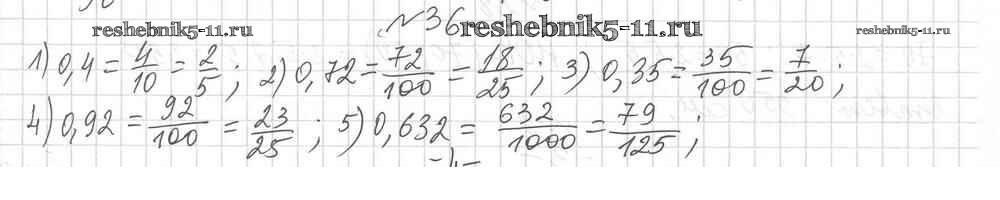 №36
reshebnik5-11.ru reshebnik5-11.ru reshebnik5-11.ru
1) 0,4 = 4/10 = 2/5 ; 2) 0,72 = 72/100 = 18/25 ; 3) 0,35 = 35/100 = 7/20 ;
4) 0,92 = 92/100 = 23/25 ; 5) 0,632 = 632/1000 = 79/125 ;